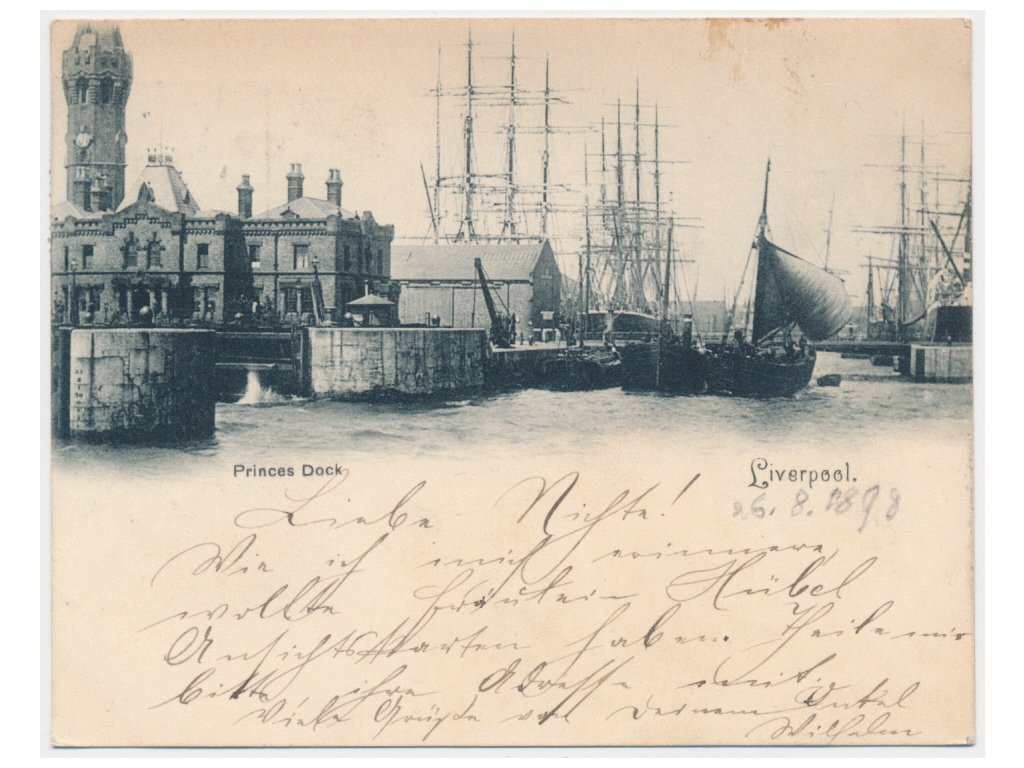 Princes Dock
Liverpool.
26. 8. 1898
Liebe Nichte!
Wie ich mich erinnere,
wollte Fräulein Hübel
Ansichtskarten haben. Theile mir
bitte ihre Adresse mit.
Viele Grüße von Deinem Onkel
Wilhelm